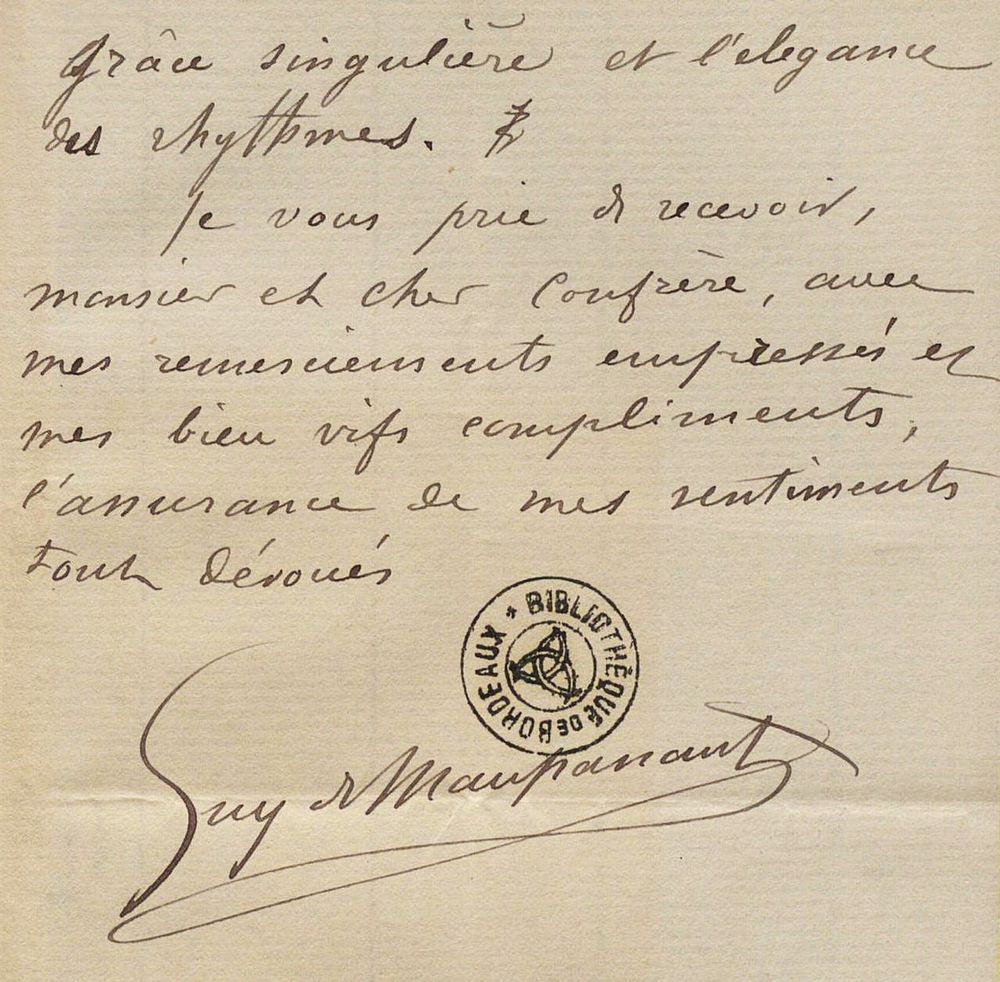 grâce singulière et l'elegance
des rhythmes.
Je vous prie de recevoir,
monsieur et cher confrère, avec
mes remerciements empressés et
mes bien vifs compliments,
l'assurance de mes sentiments
tout dévoués
BIBLIOTHÈQUE DE BORDEAUX
Guy de Maupassant